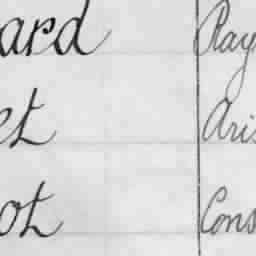 ard Ray
et Aris
ot Cons